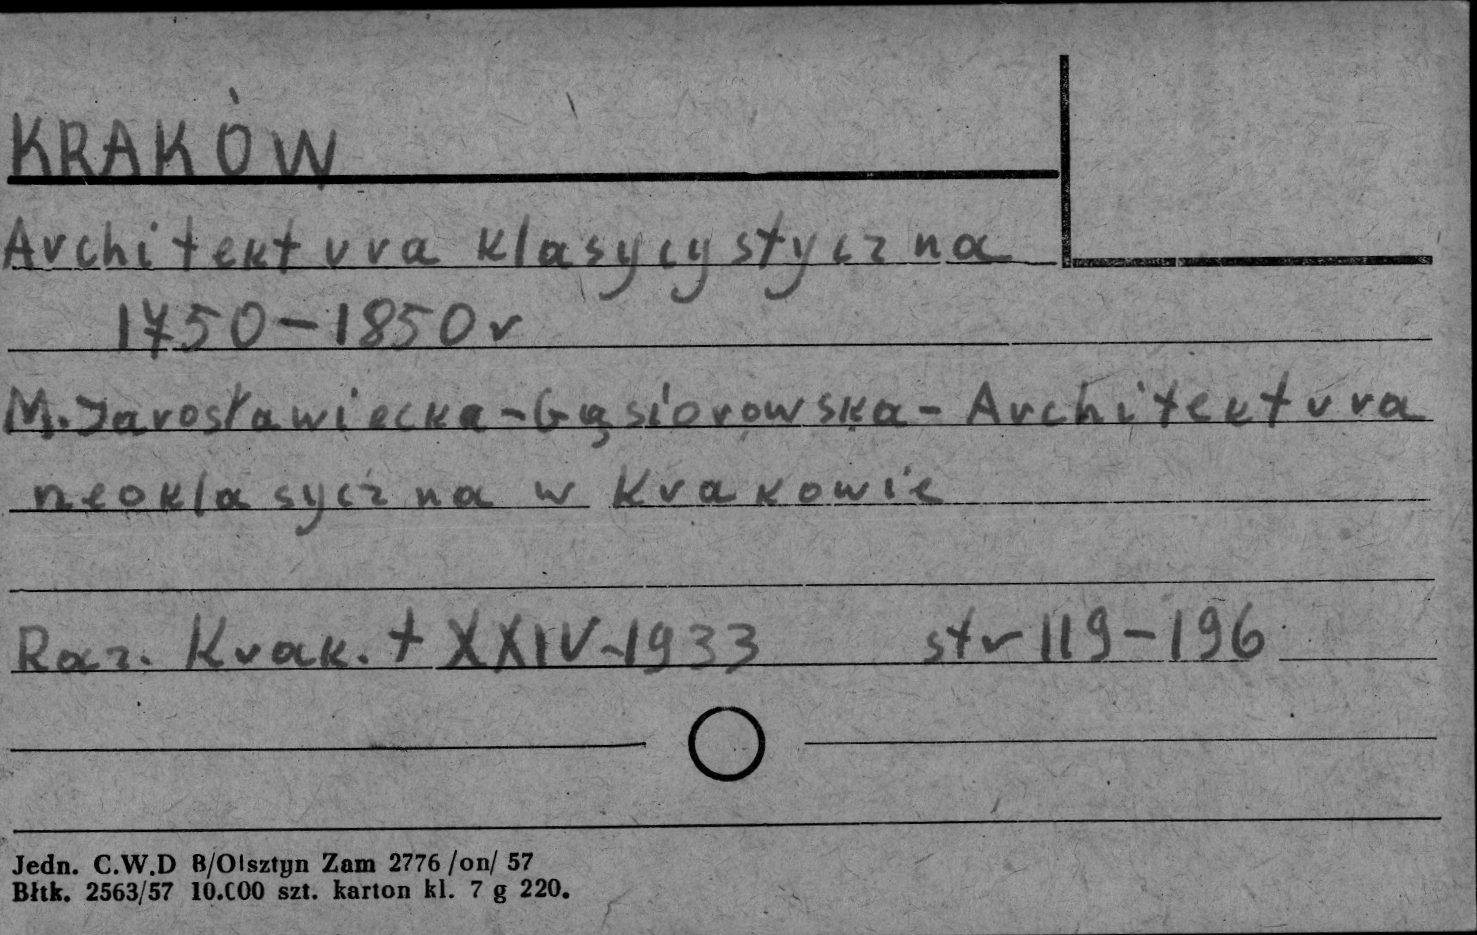 KRAKÓW
Architektura klasycystyczna
1750-1850 r
M. Jarosławiecka-Gąsiorowska - Architektura
neoklasyczna w Krakowie
Roz. Krak. t XXIV-1933 str 119-196
Jedn. C.W.D B/Olsztyn Zam 2776/on/57
Błtk. 2563/57 10.000 szt. karton kl. 7 g 220.